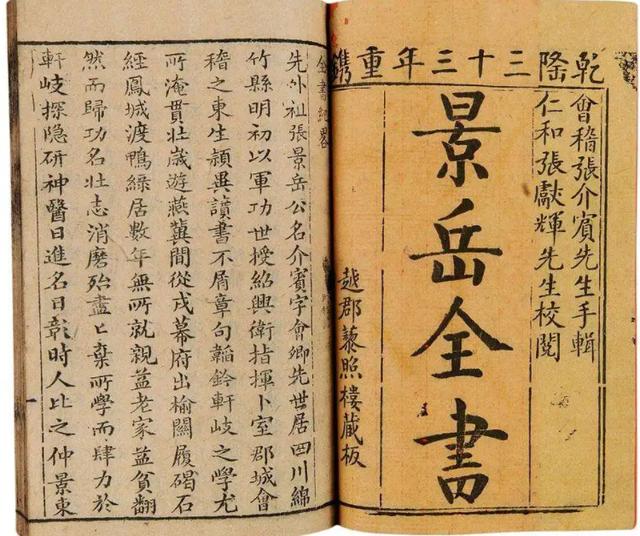 乾隆三十三年重鐫
會稽張介賓先生手輯
仁和張獻輝先生校閱
景岳全書
越郡藜照樓藏板
全書紀畧
先外祖張景岳公名介賓字會卿先世居四川綿
竹縣明初以軍功世授紹興衛指揮卜室郡城會
稽之東生頴異讀書不屑章句韜鈐軒岐之學尤
所淹貫壯歲遊燕冀間從戎幕府出榆關履碣石
經鳳城渡鴨綠居數年無所就親益老家益貧翻
然而歸功名壯志消磨殆盡〻棄所學而肆力於
軒岐探隱研神醫日進名日彰時人比之仲景東